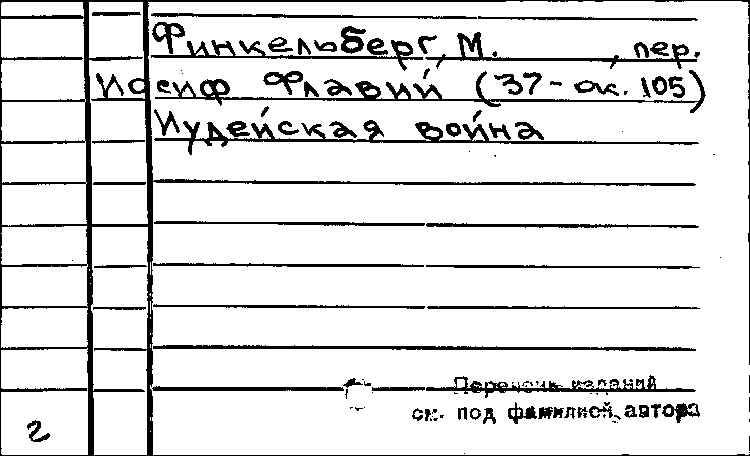 Финкельберг, М. , пер.
Иосиф Флавий (37 - ок. 105)
Иудейская война
Перечень изданий
см. под фамилией автора
г